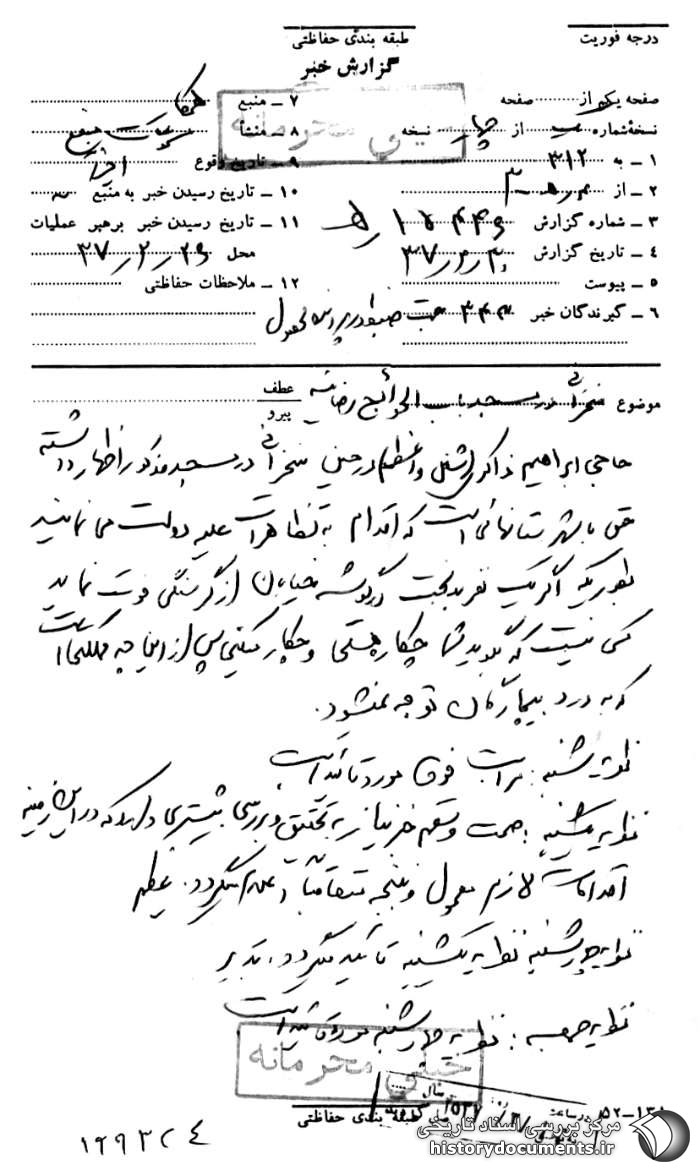 درجه فوریت
طبقه بندی حفاظتی
گزارش خبر
خیلی محرمانه
صفحه یک از صفحه
نسخهٔ شماره از چهار نسخه
۱ – به ۳۱۲
۲ – از
۳ – شماره گزارش
۴ – تاریخ گزارش
۵ – پیوست
۶ – گیرندگان خبر
۷ – منبع
۸ – منشأ
۹ – تاریخ وقوع
۱۰ – تاریخ رسیدن خبر به منبع
۱۱ – تاریخ رسیدن خبر برهبر عملیات
محل ۳۷/۲/۲۶
۱۲ – ملاحظات حفاظتی
موضوع سخنرانی در مسجد باب الحوائج رضائیه
عطف
پیرو
حاجی ابراهیم ذاکری شغل واعظ در حین سخنرانی در مسجد مذکور اظهار داشته
حق با شهرستانهائی است که اقدام به تظاهرات علیه دولت می نمایند
بطوریکه اگر یک نفر بدبخت در گوشه خیابان از گرسنگی فوت نماید
کسی نیست که بگوید شما چکاره هستی و چکار میکنی پس از این چه مملکتی است
که به درد بیچارگان توجه نمیشود.
نظریه شنبه: مراتب فوق مورد تائید است
نظریه یکشنبه: صحت و سقم خبر نیاز به تحقیق و بررسی بیشتری دارد که در این زمینه
اقدامات لازم معمول و نتیجه متعاقباً اعلام میگردد.
نظریه چهارشنبه نظریه یکشنبه تأئید میگردد.
نظریه جمعه: نظریه چهارشنبه مورد تائید است
خیلی محرمانه
طبقه بندی حفاظتی
۱۲۹۳۲۰۴
مرکز بررسی اسناد تاریخی
historydocuments.ir